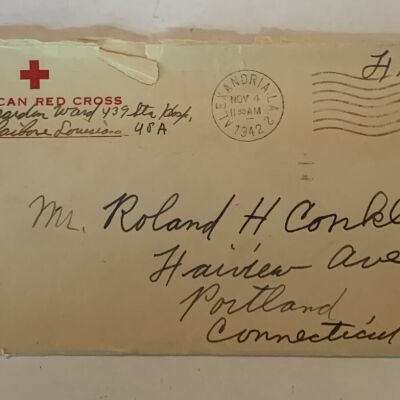 CAN RED CROSS
Ward 439 Sta Hosp,
Louisiana USA
ALEXANDRIA, LA. 2
NOV 4
11 30 AM
1942
Mr. Roland H Conkl
Fairview Ave
Portland
Connecticu